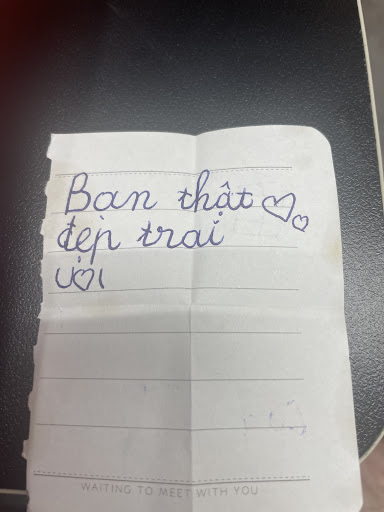 Bạn thật ♡♡
đẹp trai
U♡I
WAITING TO MEET WITH YOU